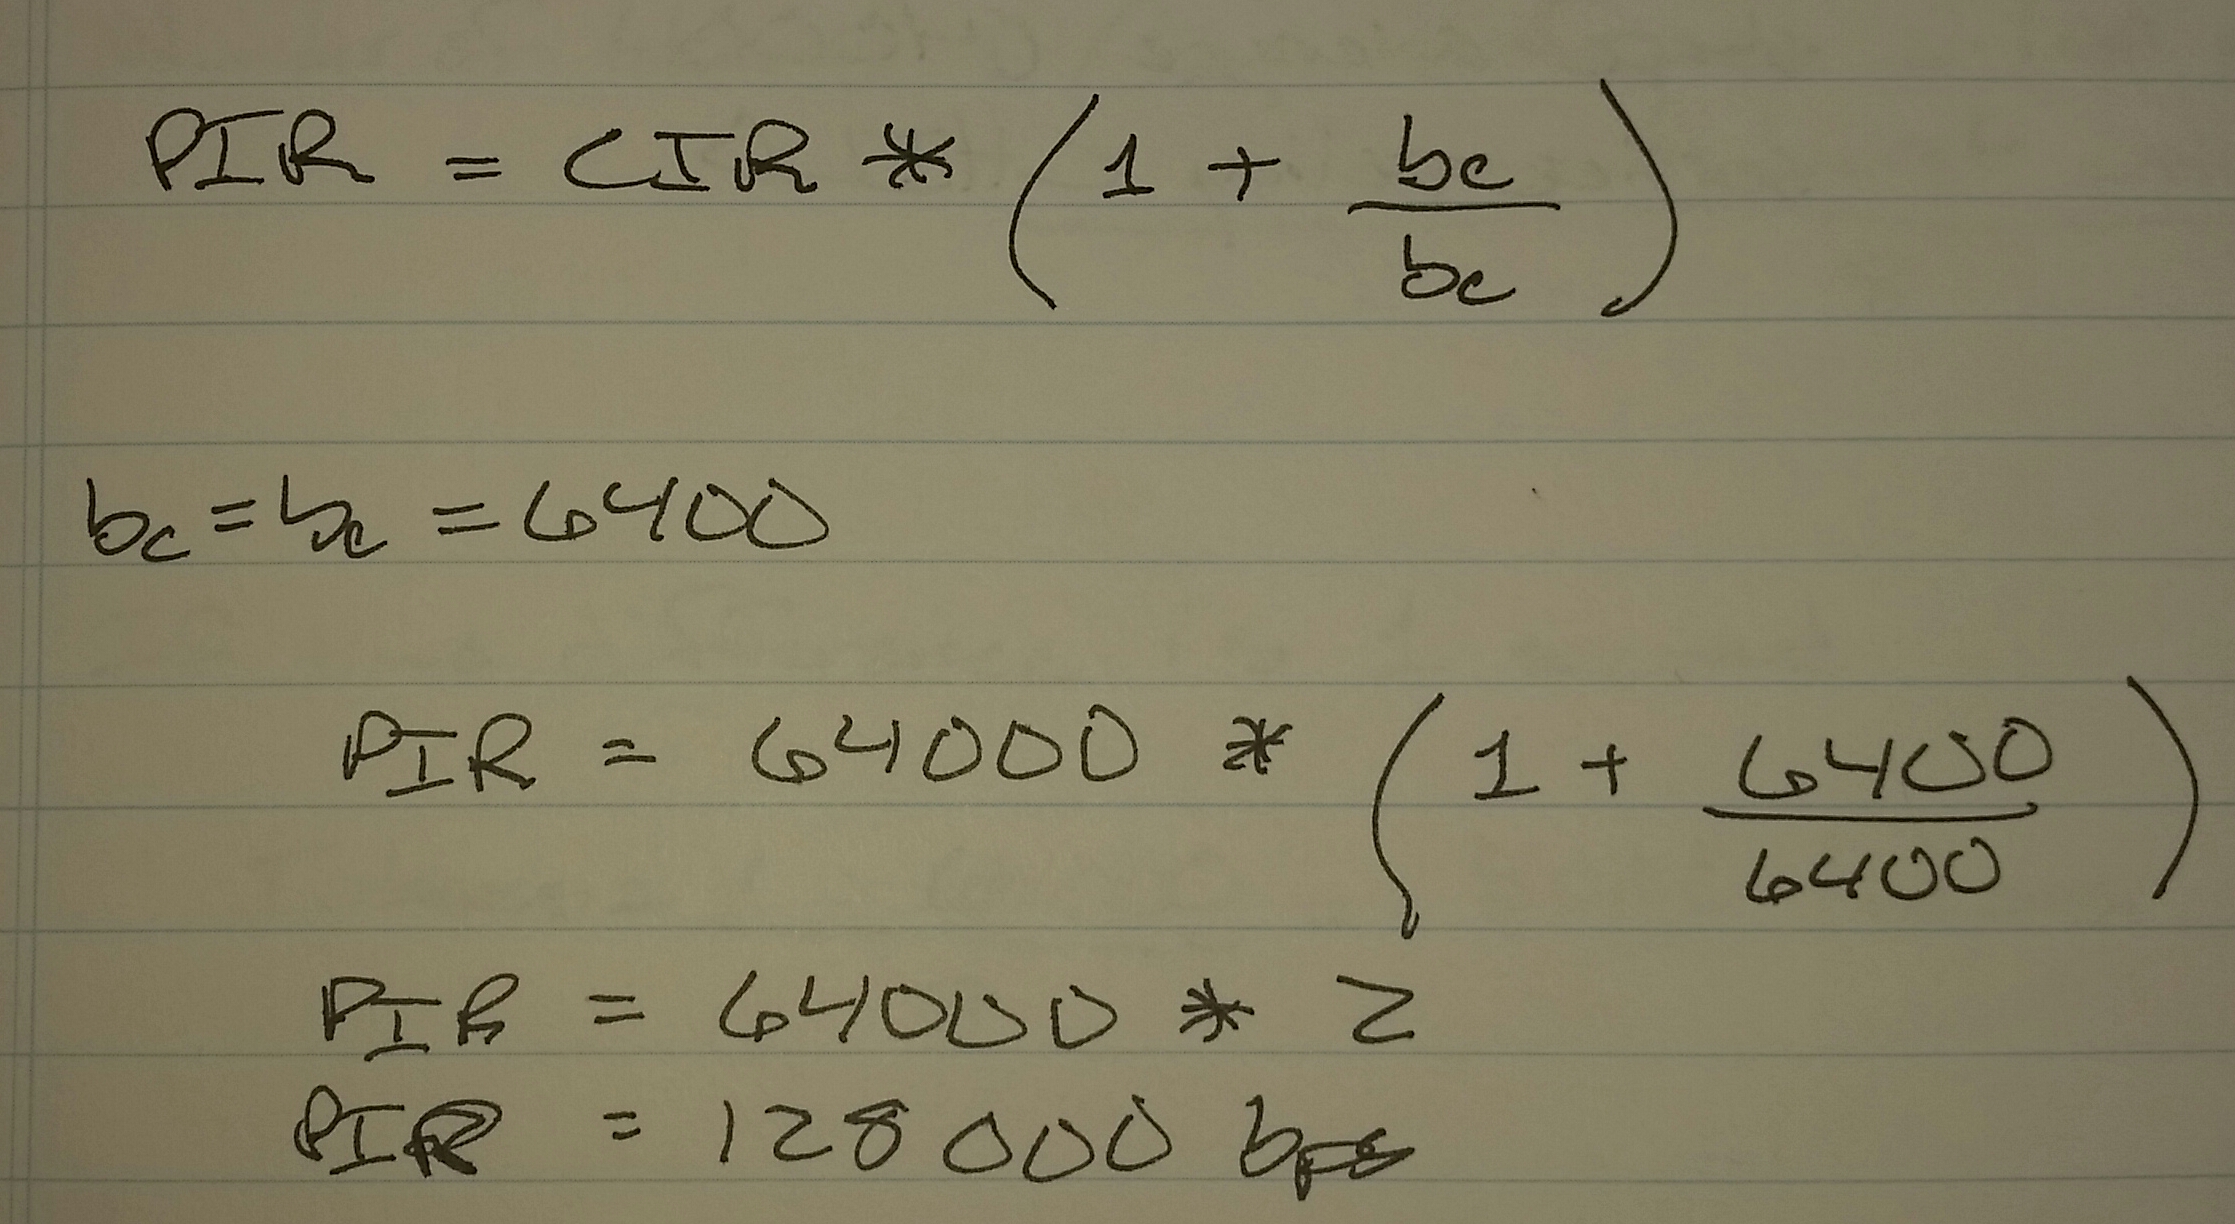 PIR = CIR * (1 + be/bc)
bc = be = 6400
PIR = 64000 * (1 + 6400/6400)
PIR = 64000 * 2
PIR = 128000 bps